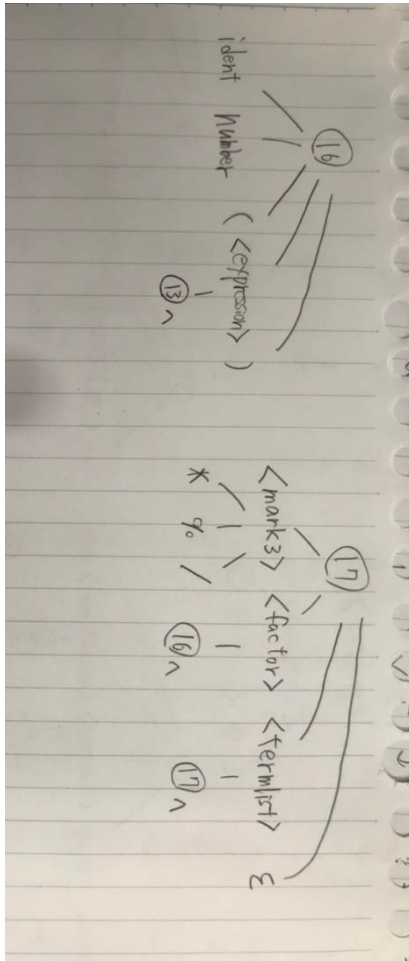 ⑯
ident number ( <expression> )
⑬ ^
⑰
<mark3> <factor> <termlist> ε
* % / ⑯ ^ ⑰ ^